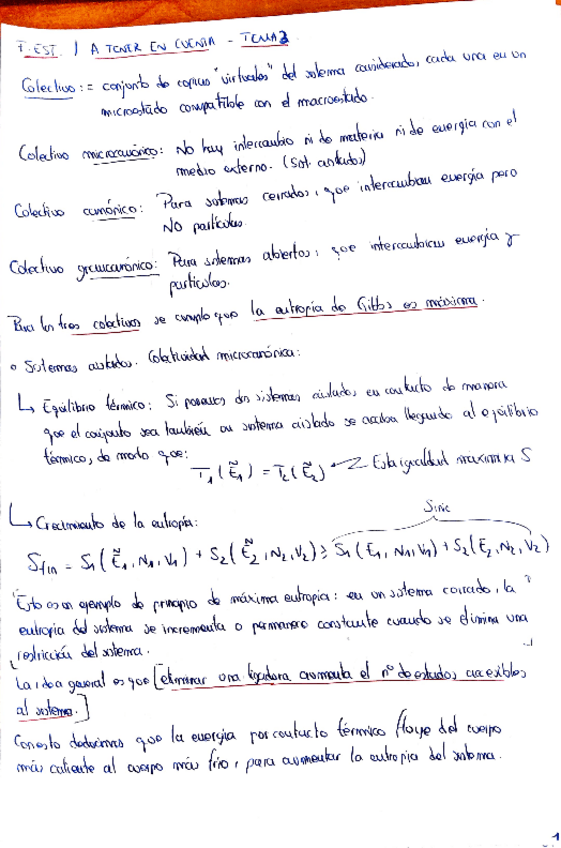 F. EST. | A TENER EN CUENTA - TEMA 2
Colectivo := conjunto de copias "virtuales" del sistema considerado, cada una en un
microestado compatible con el macroestado.
Colectivo microcanónico: No hay intercambio ni de materia ni de energía con el
medio externo. (Sist. aislados)
Colectivo canónico: Para sistemas cerrados, que intercambian energía pero
NO partículas.
Colectivo grancanónico: Para sistemas abiertos, que intercambian energía y
partículas.
Para los tres colectivos se cumple que la entropía de Gibbs es máxima.
o Sistemas aislados. Colectividad microcanónica:
↳ Equilibrio térmico: Si ponemos dos sistemas aislados en contacto de manera
que el conjunto sea también un sistema aislado se acaba llegando al equilibrio
térmico, de modo que:
T₁(Ẽ₁) = T₂(Ẽ₂) Esta igualdad maximiza S
↳ Crecimiento de la entropía:
Sinic
Sfin = S₁(Ẽ₁, N₁, V₁) + S₂(Ẽ₂, N₂, V₂) ≥ S₁(E₁, N₁, V₁) + S₂(E₂, N₂, V₂)
"Esto es un ejemplo de principio de máxima entropía: en un sistema cerrado, la
entropía del sistema se incrementa o permanece constante cuando se elimina una
restricción del sistema."
La idea general es que [eliminar una ligadura aumenta el nº de estados accesibles
al sistema.]
Con esto deducimos que la energía por contacto térmico fluye del cuerpo
más caliente al cuerpo más frío, para aumentar la entropía del sistema.
1